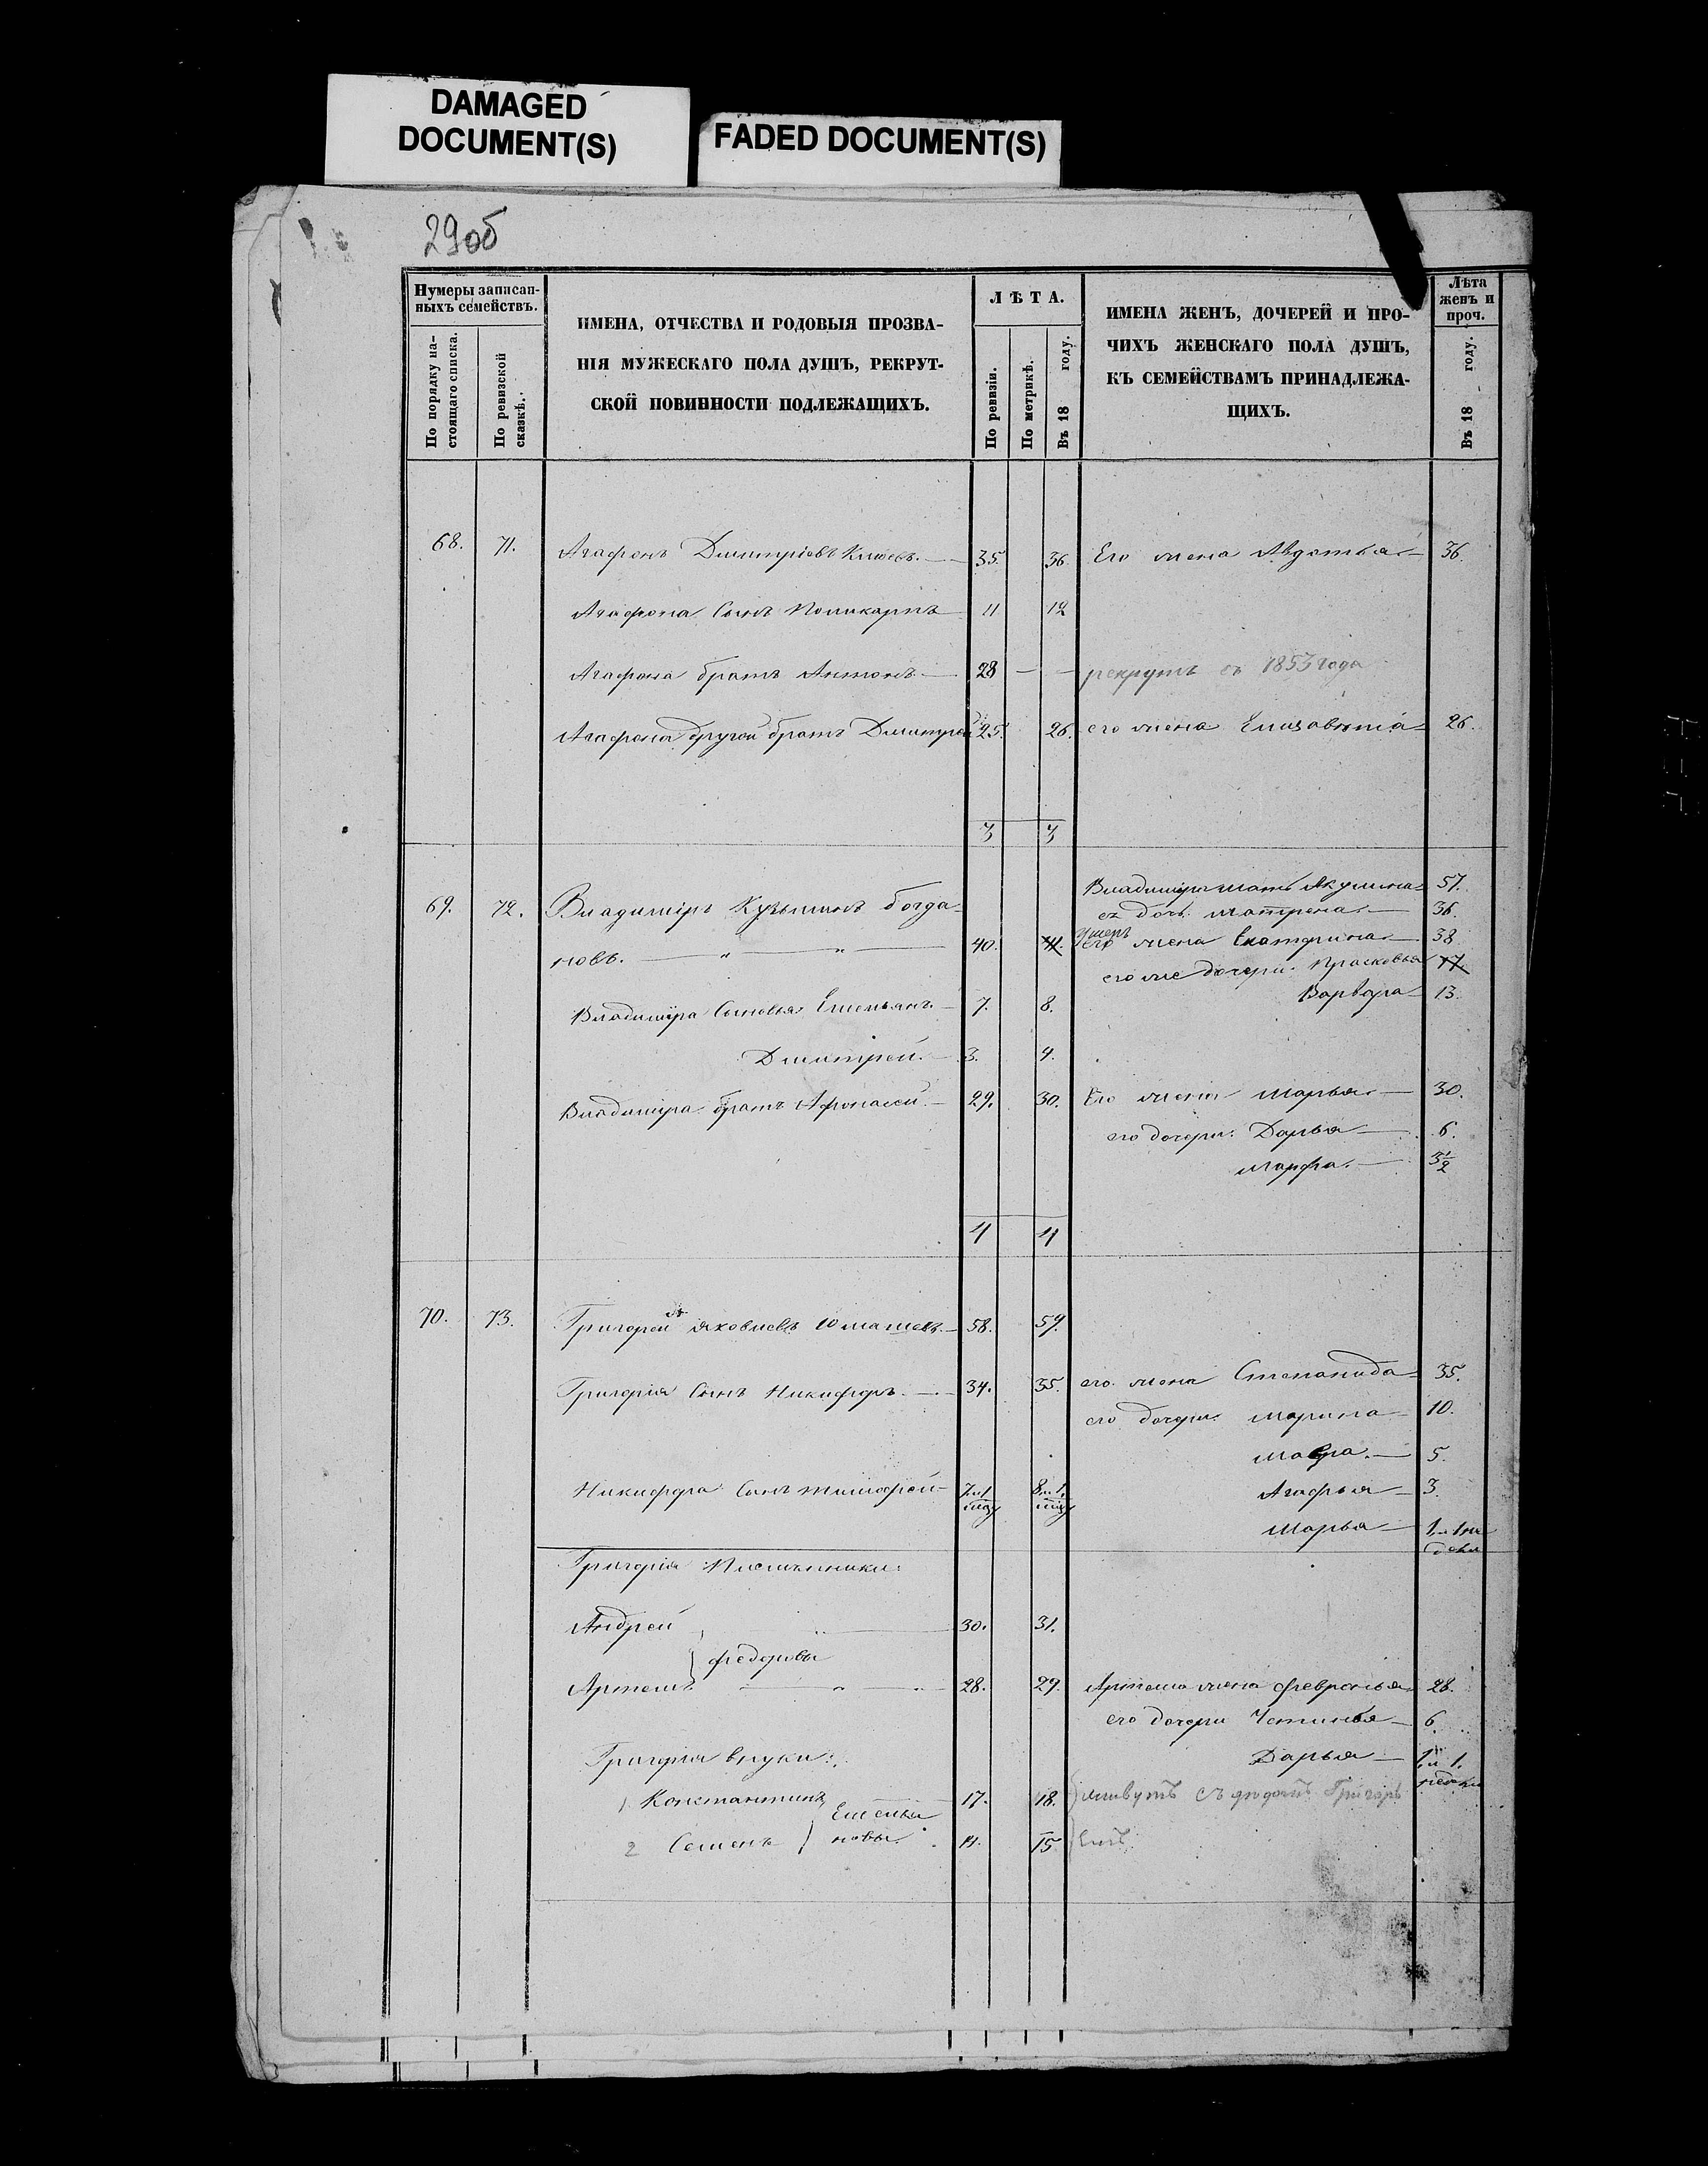 DAMAGED
DOCUMENT(S)
FADED DOCUMENT(S)
29об
Нумеры записан-
ныхъ семействъ.
По порядку на-
стоящаго списка.
По ревизской
сказкѣ.
ИМЕНА, ОТЧЕСТВА И РОДОВЫЯ ПРОЗВА-
НІЯ МУЖЕСКАГО ПОЛА ДУШЪ, РЕКРУТ-
СКОЙ ПОВИННОСТИ ПОДЛЕЖАЩИХЪ.
ЛѢТА.
По ревизіи.
По метрикѣ.
Въ 18 году.
ИМЕНА ЖЕНЪ, ДОЧЕРЕЙ И ПРО-
ЧИХЪ ЖЕНСКАГО ПОЛА ДУШЪ,
КЪ СЕМЕЙСТВАМЪ ПРИНАДЛЕЖА-
ЩИХЪ.
Лѣта
женъ и
проч.
Въ 18 году.
68. 71. Агафонъ Дмитріевъ 35. 36. Его жена Авдотья 36.
Агафона Сынъ Поликарпъ 11 12
Агафона братъ Антонъ 28 — — рекрутъ съ 1853 года
Агафона другой братъ Дмитрей 25. 26. его жена Елизавѣта 26.
3 3
Владиміра мать Акулина 57.
69. 72. Владиміръ Кузьминъ Богда-
ея дочь Матрена 36.
умеръ
новъ. — " — " — 40. 41. его жена Екатерина 38
его же дочери: Прасковья 17.
Варвара 13.
Владиміра Сыновья Емельянъ 7. 8.
Дмитрей. 3. 4.
Владиміра братъ Афонасей 29. 30. Его жена Марья 30.
его дочери: Дарья 6.
Марфа. 3½
4 4
70. 73. Григорей Яковлевъ Юмашевъ. 58. 59.
Григорія Сынъ Никифоръ. 34. 35. его жена Степанида 35.
его дочери: Марина 10.
Мавра. 5.
Никифора Сынъ Тимофей 7 м 1 8 м 1. Агафья 3.
Марья
Григорія Племянники:
Андрей 30. 31.
Федоровы
Артемъ 28. 29. Артема жена Февронья 28.
его дочери Устинья 6.
Григорія внуки: Дарья
1 Константинъ Емелья 17. 18. живутъ съ дядомъ Григорь
2 Семенъ новы. 14. 15 емъ